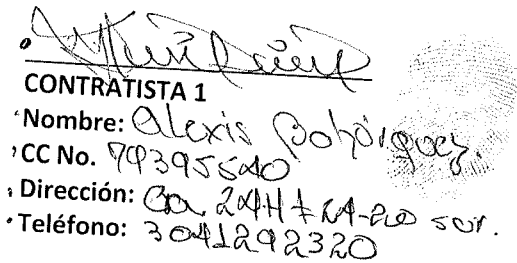 CONTRATISTA 1
Nombre: Alexis Bohórquez.
CC No. 79395540
Dirección: Cra. 24H # sur.
Teléfono: 3041292320